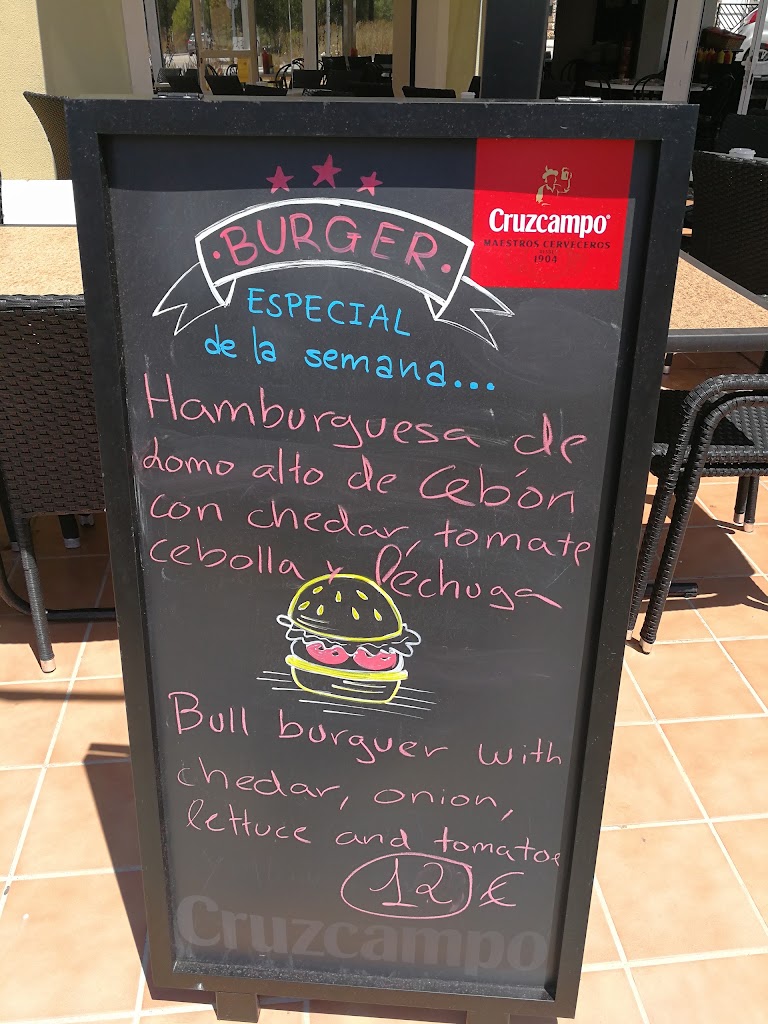 Cruzcampo
MAESTROS CERVECEROS
1904
·BURGER·
ESPECIAL
de la semana...
Hamburguesa de
Lomo alto de Cebón
con chedar, tomate
cebolla y lechuga
Bull burguer with
chedar, onion,
lettuce and tomatoe
12 €
Cruzcampo